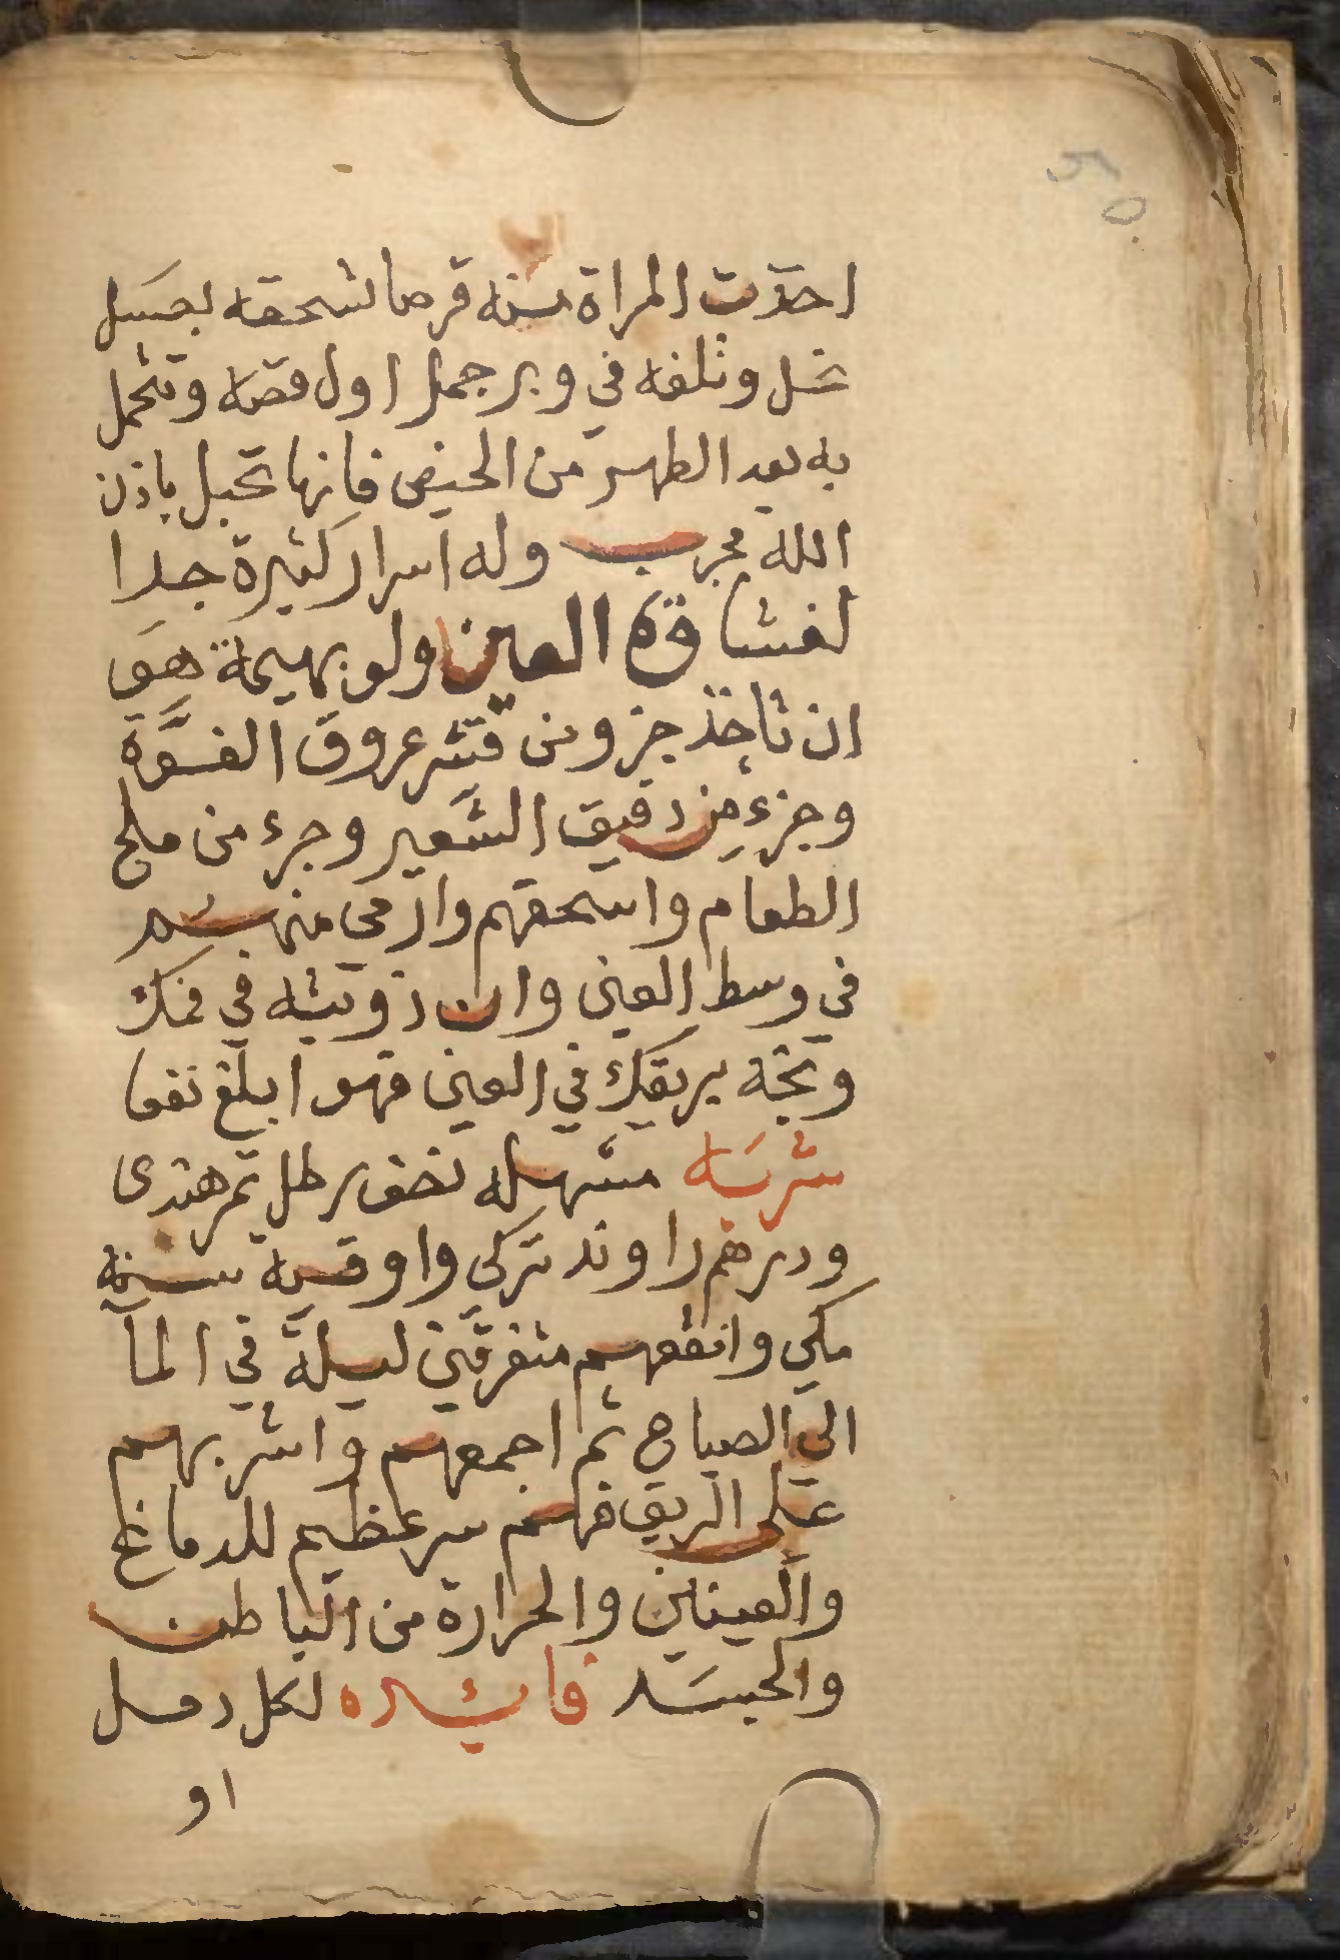 اخذت المراة منه قرصا تسحقه بعسل
نحل وتلفه في وبر جمل اول فصه وتتحمل
به بعد الطهر من الحيض فانها تحبل باذن
الله مجرب وله اسرار كثيرة جدا
لغشاوة العين ولو بهيمة هو
ان تاخذ جزو من قشر عروق الفوّة
وجزء من دقيق الشعير وجزء من ملح
الطعام واسحقهم وارمي منهم
في وسط العين وان ذوبته في فمك
وتبخه بريقك في العين فهو ابلغ نفعا
شربه مسهله نصف رطل تمر هندى
ودرهم راوند تركى واوقيه سنة
مكي وانقعهم متفرقين ليلة في المآ
الى الصباح ثم اجمعهم واشربهم
على الريق فهم سر عظيم للدماغ
والعينين والحرارة من الباطن
والجسد فائده لكل دمل
او